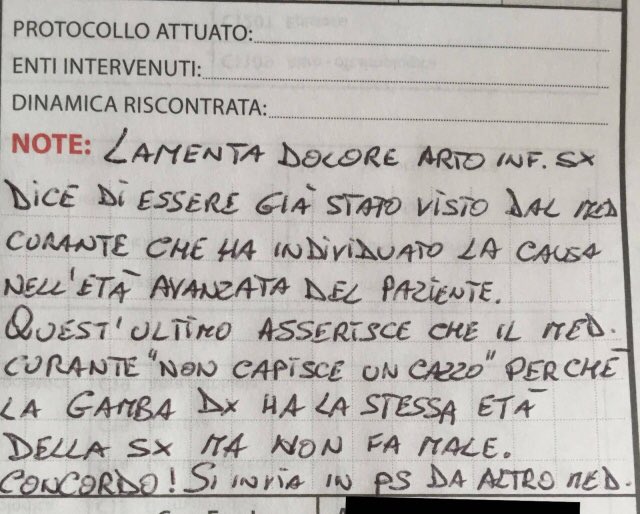 PROTOCOLLO ATTUATO:
ENTI INTERVENUTI:
DINAMICA RISCONTRATA:
NOTE: LAMENTA DOLORE ARTO INF. SX
DICE DI ESSERE GIÀ STATO VISTO DAL MED
CURANTE CHE HA INDIVIDUATO LA CAUSA
NELL'ETÀ AVANZATA DEL PAZIENTE.
QUEST'ULTIMO ASSERISCE CHE IL MED.
CURANTE "NON CAPISCE UN CAZZO" PERCHÉ
LA GAMBA DX HA LA STESSA ETÀ
DELLA SX MA NON FA MALE.
CONCORDO! SI INVIA IN PS DA ALTRO MED.